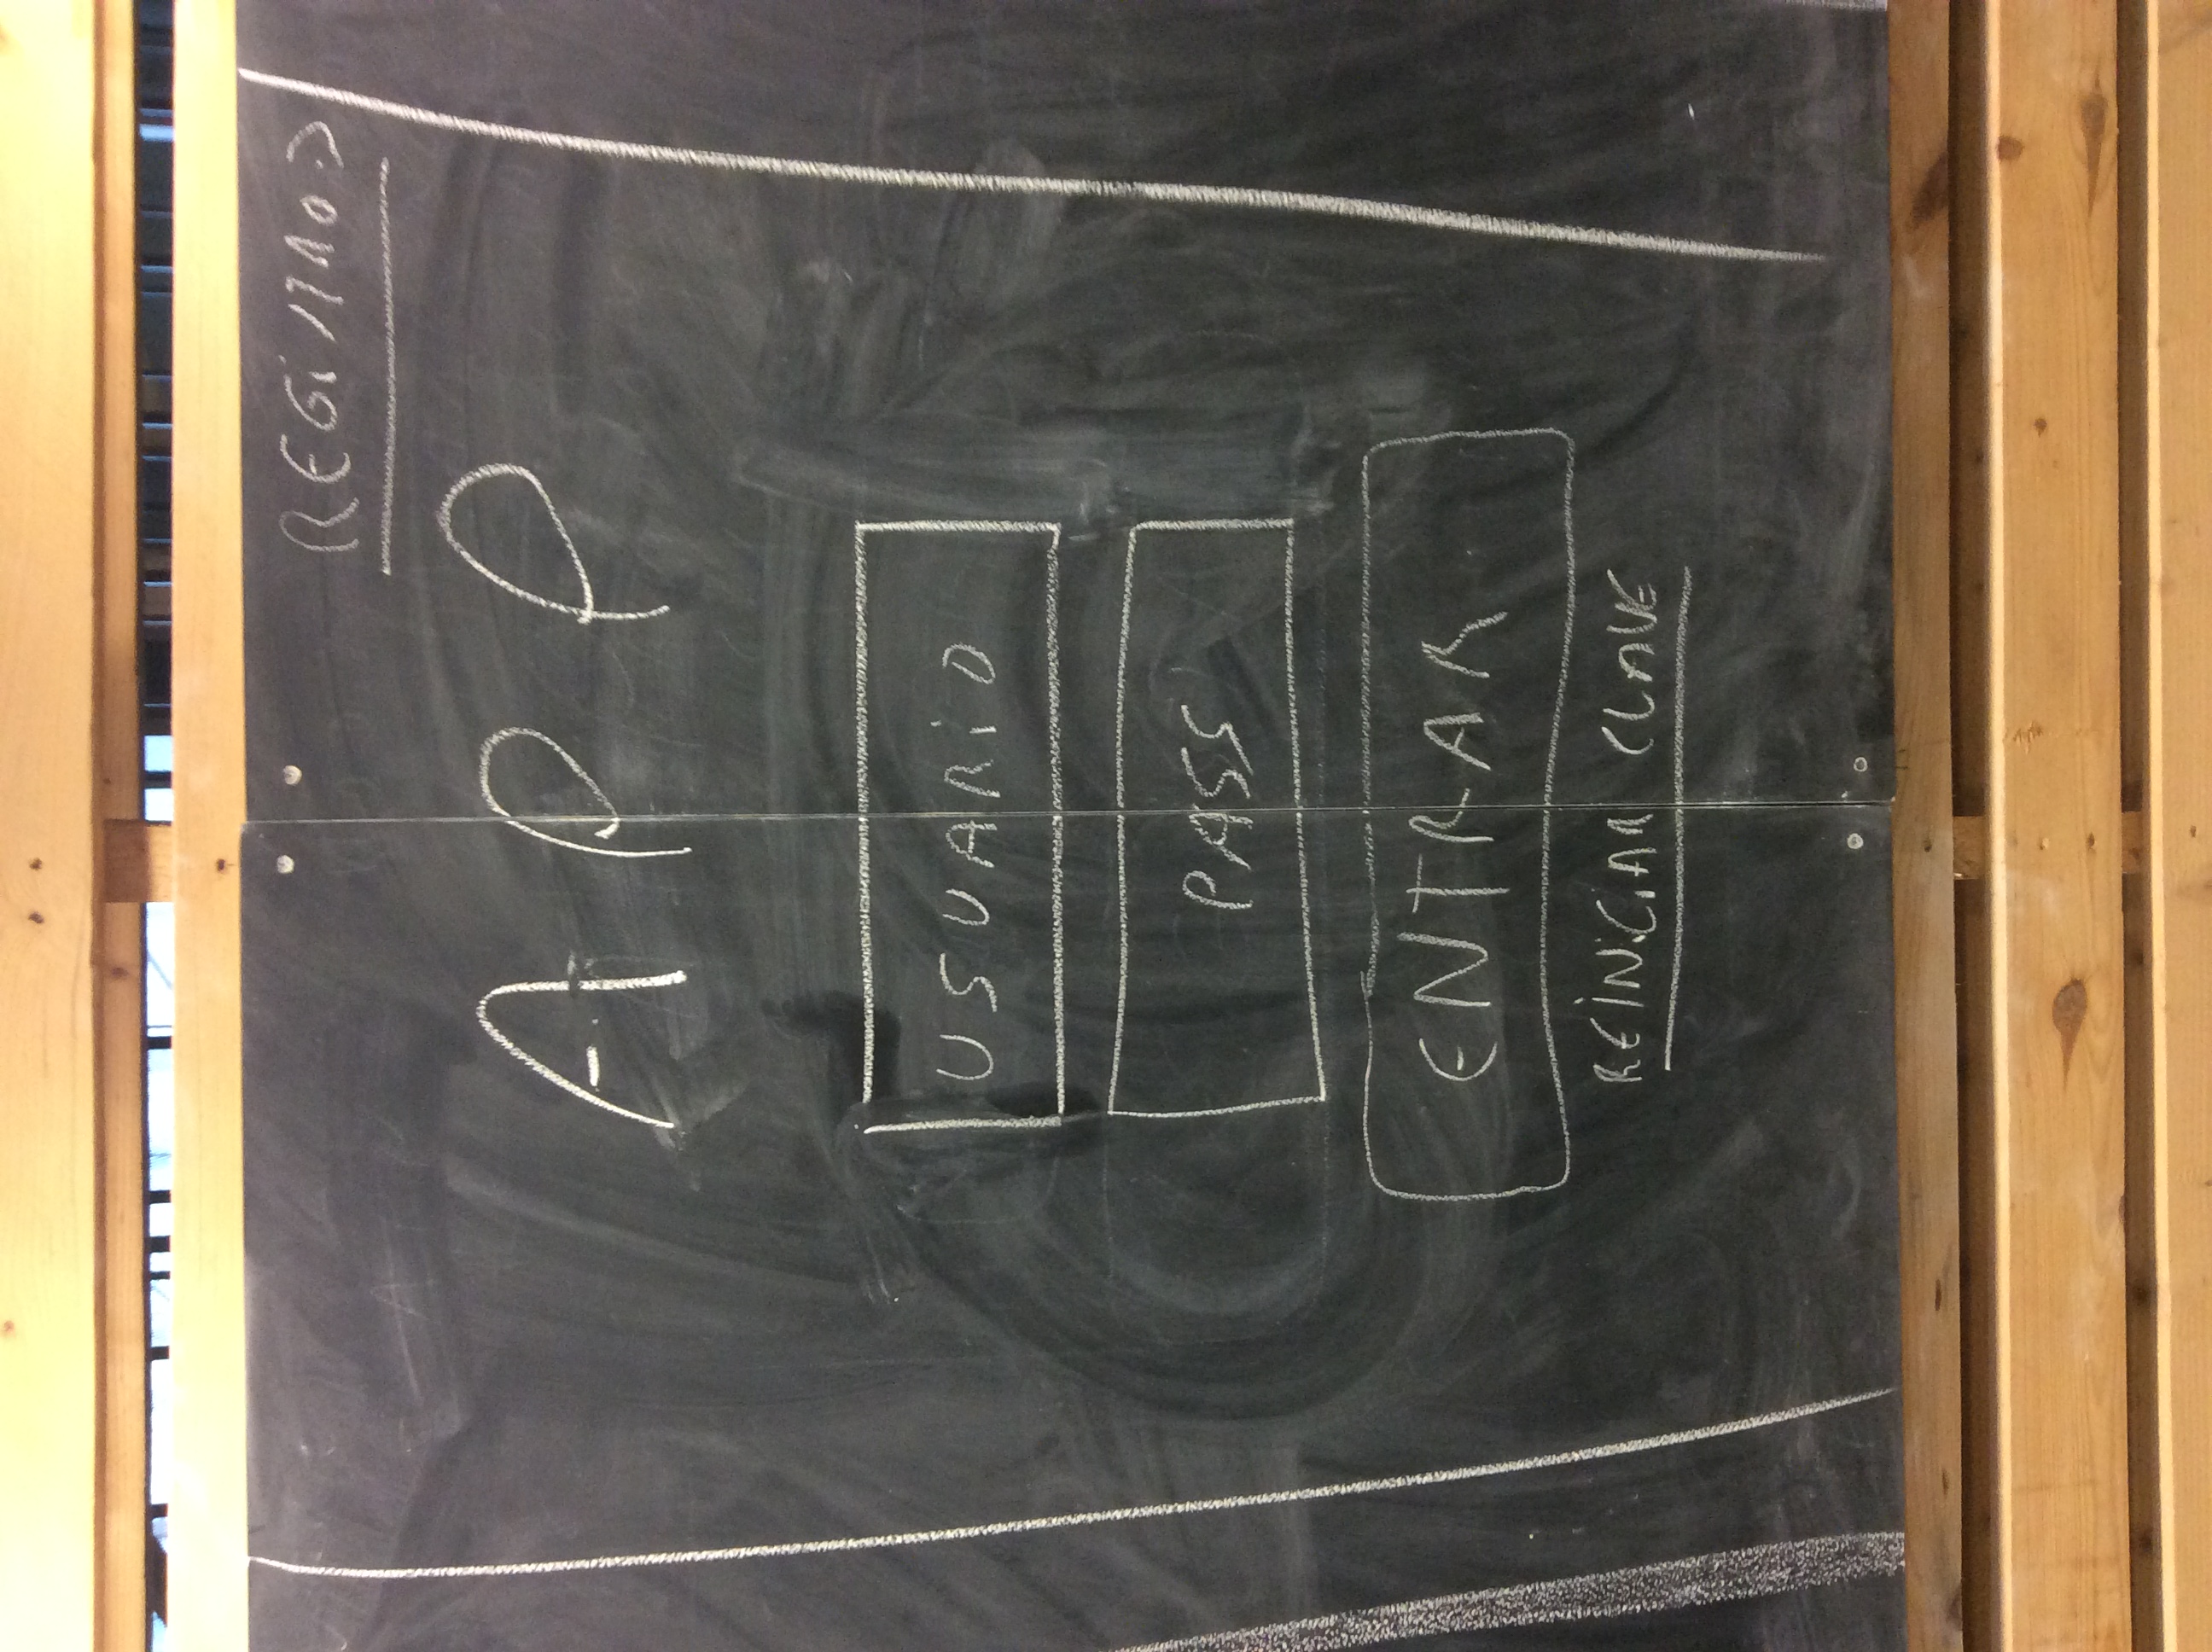 REGISTRO >
APP
USUARIO
PASS
ENTRAR
REINICIAR CLAVE